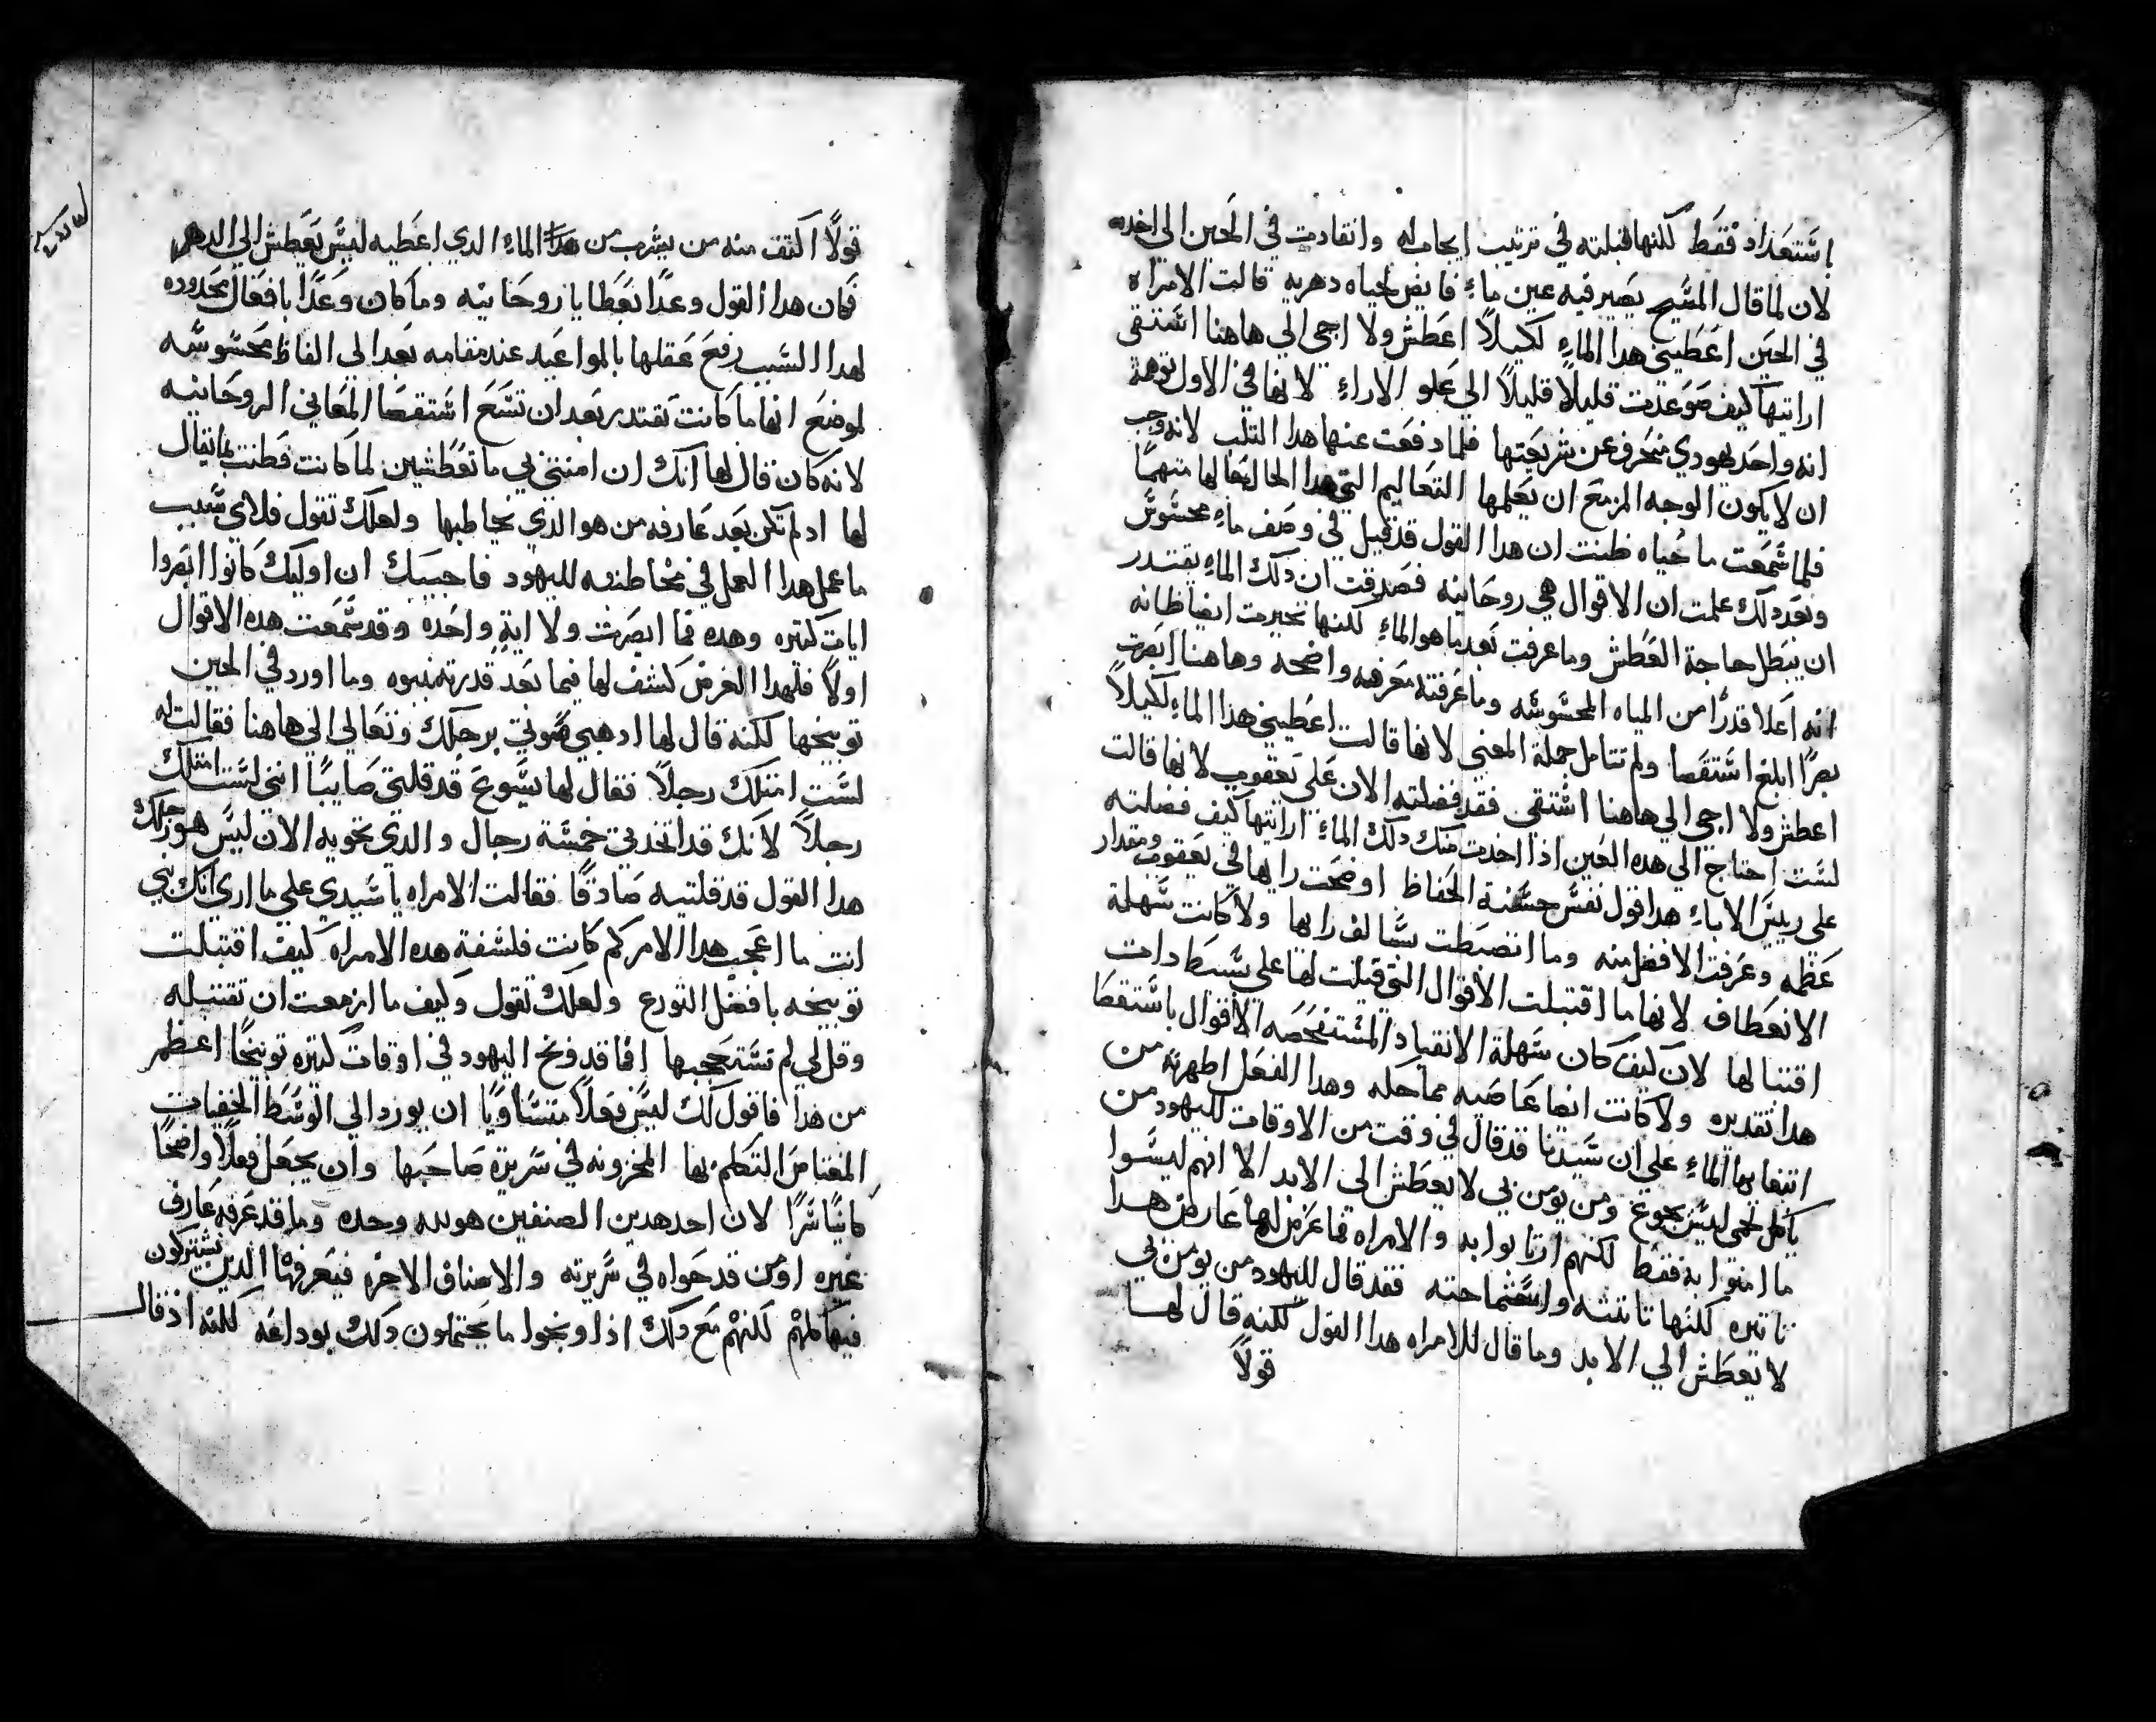 اشتعداد فقط لكنها قبلته في ترتيب ايجاب له وانقادت في الحين الى اخده
لان لما قال المسيح يصير فيه عين ماءٍ فايض لحياه دهريه قالت الامراه
في الحين اعطيني هدا الماءٍ لكيلاً اعطش ولا اجي الي هاهنا استقى
ارايتها كيف صوعدت قليلاً قليلاً الي علو الاراءٍ لانها في الاول توهمة
انه واحد يهودي منحرف عن شريعتها فلما دفعت عنها هدا التلب لانه وجب
ان لا يكون الوجه المزمع ان يعلمها التعاليم التي هدا الحال تعالها متهماً
فلما سمعت ما حياه ظنت ان هدا القول قد قيل في وصف ماءٍ محسوس
وبعد دلك علمت ان الاقوال هي روحانيه فصدقت ان دلك الماءٍ يقتدر
ان يبطل حاجة العطش وما عرفت بعد ما هو الماءٍ لكنها تحيرت ايضاً ظانه
انه اعلا قدراً من المياه المحسوسه وما عرفته معرفه واضحه وهاهنا ابصرت
بصراً ابلغ استقصا ولم تتامل جملة المعني لانها قالت اعطيني هدا الماءٍ لكيلاً
اعطش ولا اجي الي هاهنا اشتقى فقد فضلته الان على يعقوب لانها قالت
لست احتاج الي هده العين اذا اخدت منك دلك الماءٍ ارايتها كيف فضلته
على رييس الاباءٍ هدا قول نفس حسنة الحفاظ اوضحت رايها في يعقوب ومقدار
عظمه وعرفت الافضل منه وما انضبطت بسالف رايها ولا كانت سهلة
الانعطاف لانها ما اقتبلت الاقوال التي قيلت لها على بسيط دات
اقتنالها لان كيف كان سهلة الانقياد المستفحصه الاقوال باستقصا
هدا تقديره ولا كانت ايضا عاصيه مماحكه وهدا الفعل اظهرته من
ابتغايها الماءٍ على ان سيدنا قد قال في وقت من الاوقات لليهود من
ياكل لحمي ليس يجوع ومن يومن بي لا يعطش الى الابد الا انهم ليسوا
ما امنوا به فقط لكنهم ارتابوا به والامراه فما عرض لها عارض هدا
تاتيره لكنها تاتنته واستماحته فقد قال لليهود من يومن بي
لا يعطش الي الابد وما قال للامراه هدا القول لكنه قال لها
قولاً
قولاً اكتف منه من يشرب من هدا الماءِ الدي اعطيه ليس يعطش الي الدهر
فكان هدا القول وعداً بعطايا روحانيه وما كان وعداً بافعال محدوده
لهدا السبب رفع عقلها بالمواعيد عند مقامه بعد الى الفاظ محسوسه
لموضع انها ما كانت تقتدر بعد ان تسع استقصا المعاني الروحانيه
لانه كان قال لها انك ان امنتي بي ما تعطشين لما كانت فطنت بما يقال
لها اد لم تكن بعد عارفه من هو الذي يخاطبها ولعلك تقول فلاي سبب
ما عمل هدا العمل في مخاطبته لليهود فاجيبك ان اوليك كانوا ابصروا
ايات كتيره وهده فما ابصرت ولا ايةٍ واحده وقد سمعت هده الاقوال
اولاً فلهدا الغرض كشف لها فيما بعد قدرته بنبوه وما اورد في الحين
توبيخها لكنه قال لها ادهبي صوتي برجلك وتعالي الي هاهنا فقالت له
لست امتلك رجلاً فقال لها يسوع قد قلتي صايباً انني لست امتلك
رجلاً لانك قد اتخدتي خمسة رجال والذي تحويه الان ليس هو رجلك
هدا القول قد قلتيه صادقاً فقالت الامراه يا سيدي على ما اري انك نبي
انت ما اعجب هدا الامر كم كانت فلسفة هده الامراه كيف اقتبلت
توبيخه بافضل التورع ولعلك تقول وكيف ما ازمعت ان تقتبله
وقل لي لم تستعجبها انما قد وبخ اليهود في اوقات كتيره توبيخاً اعظم
من هدا فاقول لك ليس فعلاً متساوياً ان يورد الي الوسط الخفيات
المغتامض التكلم بها المخزونه في سريرة صاحبها وان يجعل فعلاً واضحاً
كاينا سراً لان احد هدين الصنفين هو لله وحده وما قد عرفه عارف
غيره او من قد حواه في سريرته والاصناف الاخره فيعرفها الدين يشتركون
فيها كلهم لكنهم مع دلك اذا وبخوا ما يحتملون دلك بوداعه لكنه اذ قال